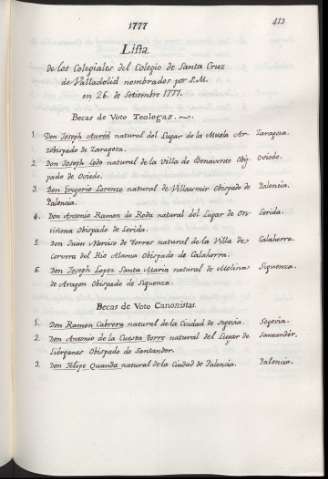 1777
413
Lista
de los Colegiales del Colegio de Santa Cruz
de Valladolid nombrados por S.M.
en 26 de Setiembre 1777.
Becas de Voto Teologas.
1. Don Joseph natural del Lugar de la Muela Ar- Zaragoza.
zobispado de Zaragoza.
2. Don Joseph Ledo natural de la Villa de Benavente Obis- Oviedo.
pado de Oviedo.
3. Don Gregorio Lorenzo natural de Villaumir Obispado de Palencia.
Palencia.
4. Don Antonio Ramon de Roda natural del Lugar de On- Lerida.
tiñena Obispado de Lerida.
5. Don Juan de Torres natural de la Villa de Calahorra.
Cervera del Rio Alhama Obispado de Calahorra.
6. Don Joseph Lopez Santa Maria natural de Molina Siguenza.
de Aragon Obispado de Siguenza.
Becas de Voto Canonistas.
1. Don Ramon Cabrera natural de la Ciudad de Segovia. Segovia.
2. Don Antonio de la Cuesta Torre natural del Lugar de Santander.
Lierganes Obispado de Santander.
3. Don Felipe natural de la Ciudad de Palencia. Palencia.